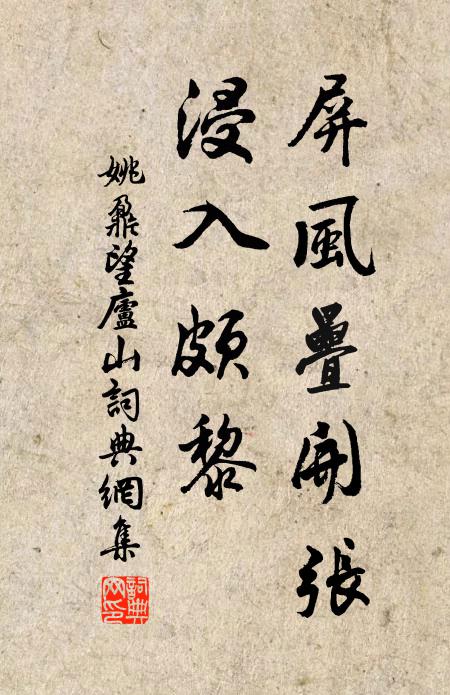 屏風疊開張
浸入頗黎
姚鼐望廬山詞典網集
詞典網印